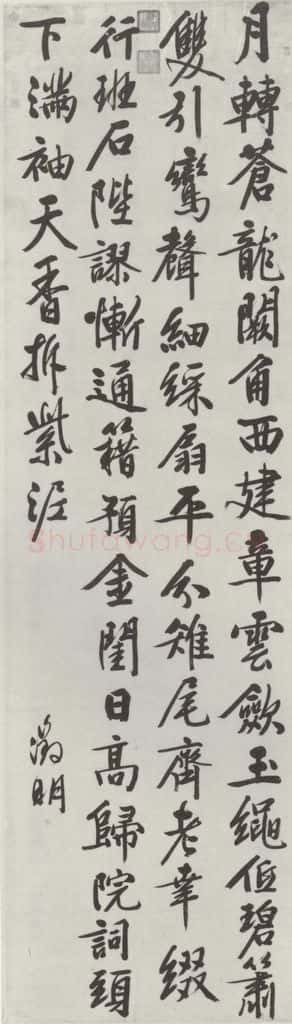 月轉蒼龍闕角西建章雲斂玉繩低碧簫
雙引鸞聲細綵扇平分雉尾齊老幸綴
行班石陛謬慚通籍預金閨日高歸院詞頭
下滿袖天香拆紫泥
徵明
shufawang.cn